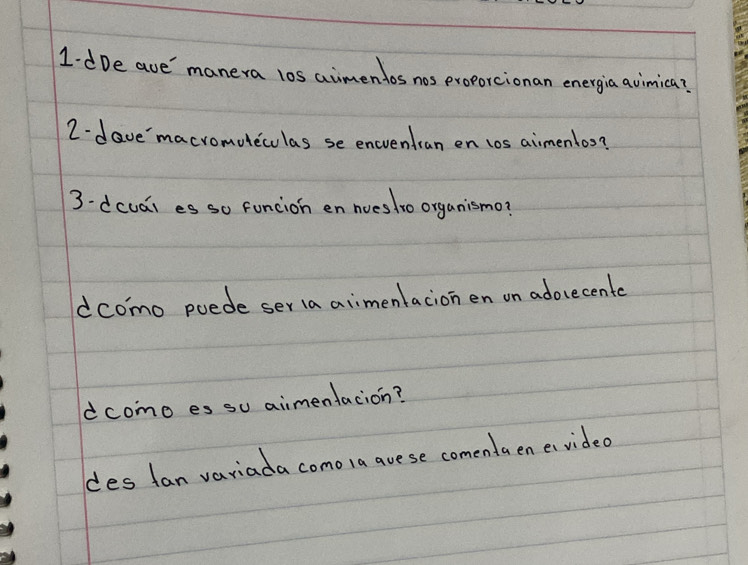 1-¿De qué manera los alimentos nos proporcionan energia quimica?
2-¿Qué macromoléculas se encuentran en los alimentos?
3-¿cuál es su función en nuestro organismo?
¿cómo puede ser la alimentación en un adolecente
¿cómo es su alimentación?
¿es tan variada como la que se comenta en el video